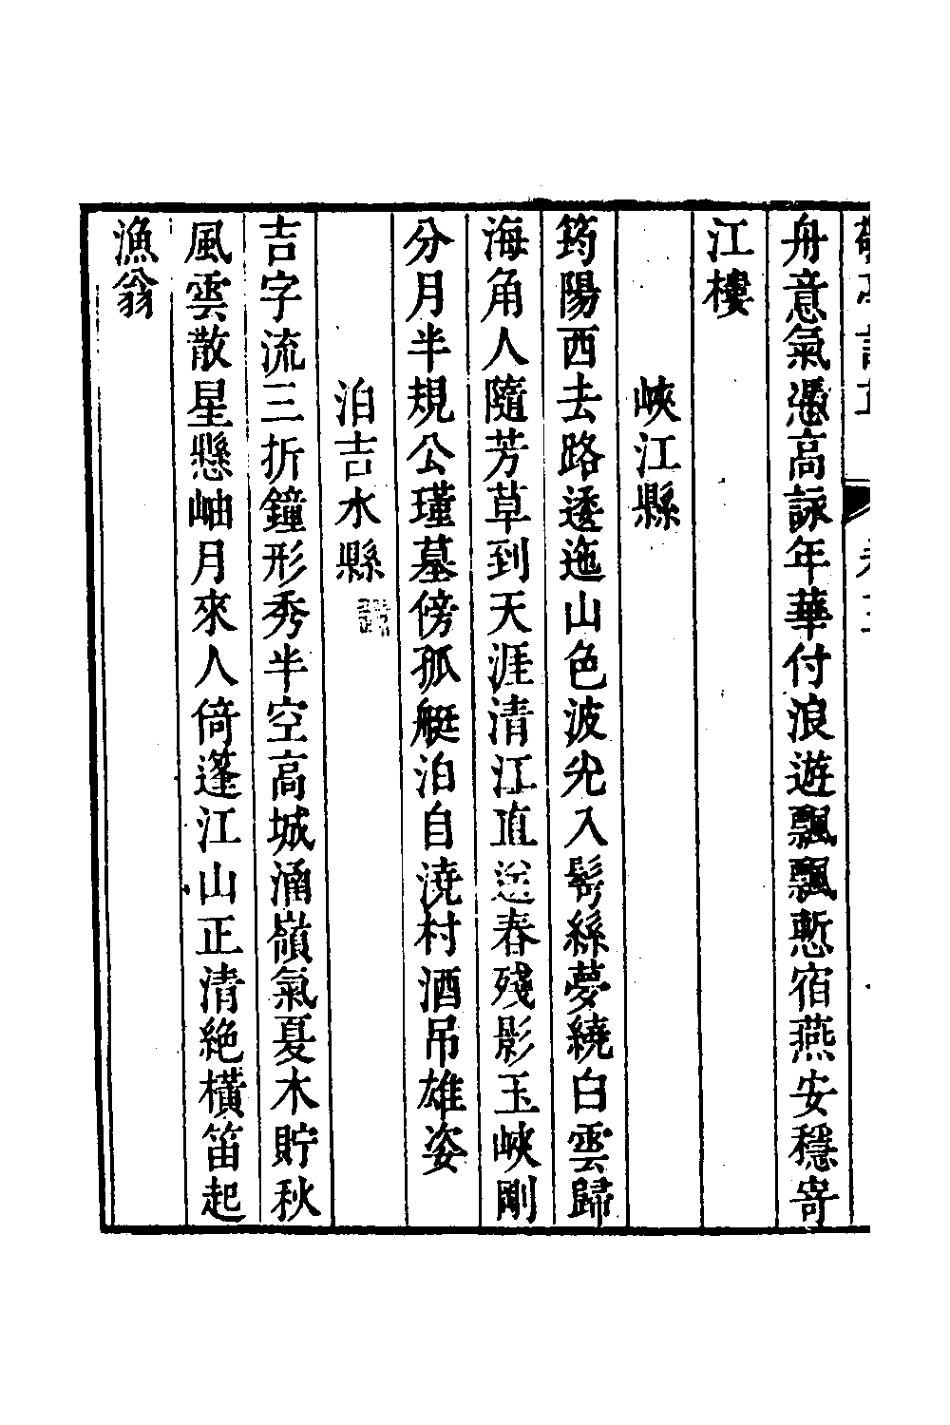 舟意氣憑高詠年華付浪遊飄飄慙宿燕安穩寄
江樓
峽江縣
筠陽西去路逶迤山色波光入鬢絲夢繞白雲歸
海角人隨芳草到天涯清江直送春殘影玉峽剛
分月半規公瑾墓傍孤艇泊自澆村酒吊雄姿
泊吉水縣
吉字流三折鐘形秀半空高城涌嶺氣夏木貯秋
風雲散星懸岫月來人倚蓬江山正清絶橫笛起
漁翁